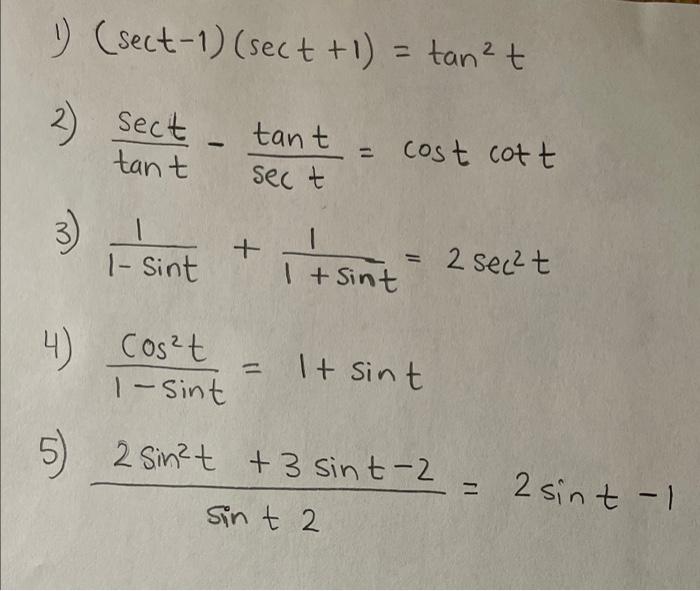 1) (sect-1)(sect+1) = tan² t
2) sect/tan t - tan t/sec t = cost cott
3) 1/1-sint + 1/1+sint = 2sec²t
4) cos²t/1-sint = 1+ sint
5) 2sin²t +3sint-2/sin t 2 = 2sint-1